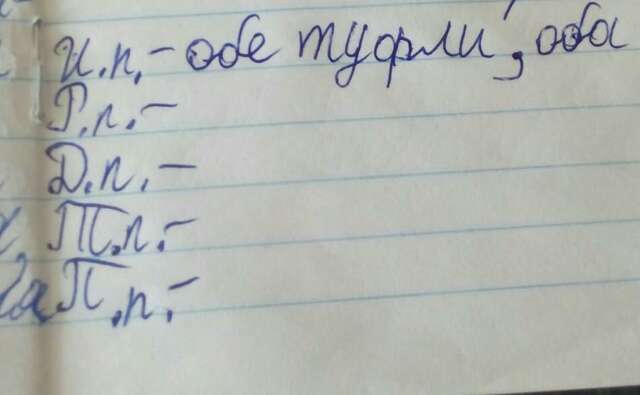 И.п.- обе туфли, оба
Р.п.-
Д.п.-
Т.п.-
П.п.-